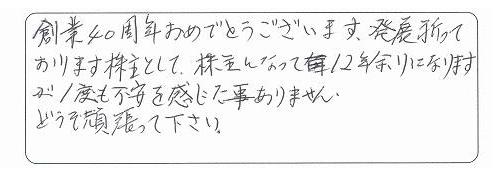 創業40周年おめでとうございます、発展祈って
おります株主として、株主になって12年余りになります
が1度も不安を感じた事ありません.
どうぞ頑張って下さい。